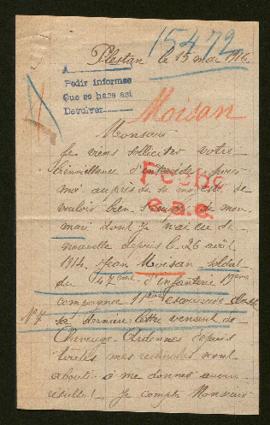 15472
Plestan le 15 mai 1916
A
Pedir informes
Que se hace asi
Devolver
Moisan
Monsieur
Je viens solliciter votre
bienveillance d'
moi auprès de sa majesté de
vouloir bien de mon
mari dont je n'ai eu de
nouvelle depuis le 26 avril
1914. Jean Moisan soldat
au 47 d'infanterie 19
compagnie 11 escouade
Nº 7 sa dernière lettre venant de
Ardennes depuis
toutes mes recherches n'ont
abouti à me donner aucun
résultat. Je compte Monsieur
Fecho
e.a.e.